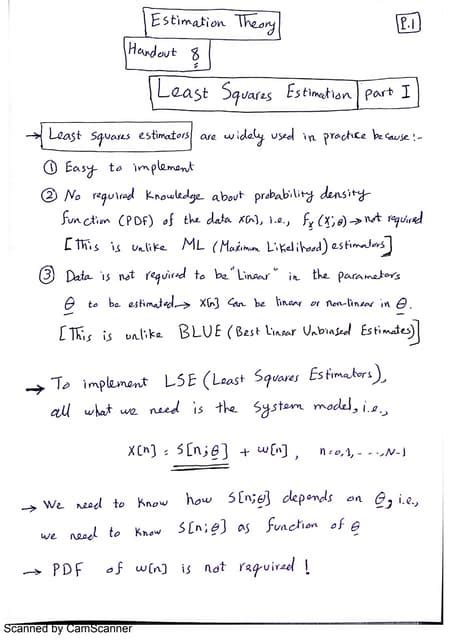 Estimation Theory
P.1
Handout 8
Least Squares Estimation part I
→ Least squares estimators are widely used in practice because:-
① Easy to implement
② No required knowledge about probability density
function (PDF) of the data x[n], i.e., fx(x;θ) → not required
[This is unlike ML (Maximum Likelihood) estimators]
③ Data is not required to be "Linear" in the parameters
θ to be estimated → x[n] can be linear or non-linear in θ.
[This is unlike BLUE (Best Linear Unbiased Estimates)]
→ To implement LSE (Least Squares Estimators),
all what we need is the system model, i.e.,
x[n] = s[n;θ] + w[n], n=0,1,...,N-1
→ We need to know how s[n;θ] depends on θ, i.e.,
we need to know s[n;θ] as function of θ
→ PDF of w[n] is not required!
Scanned by CamScanner